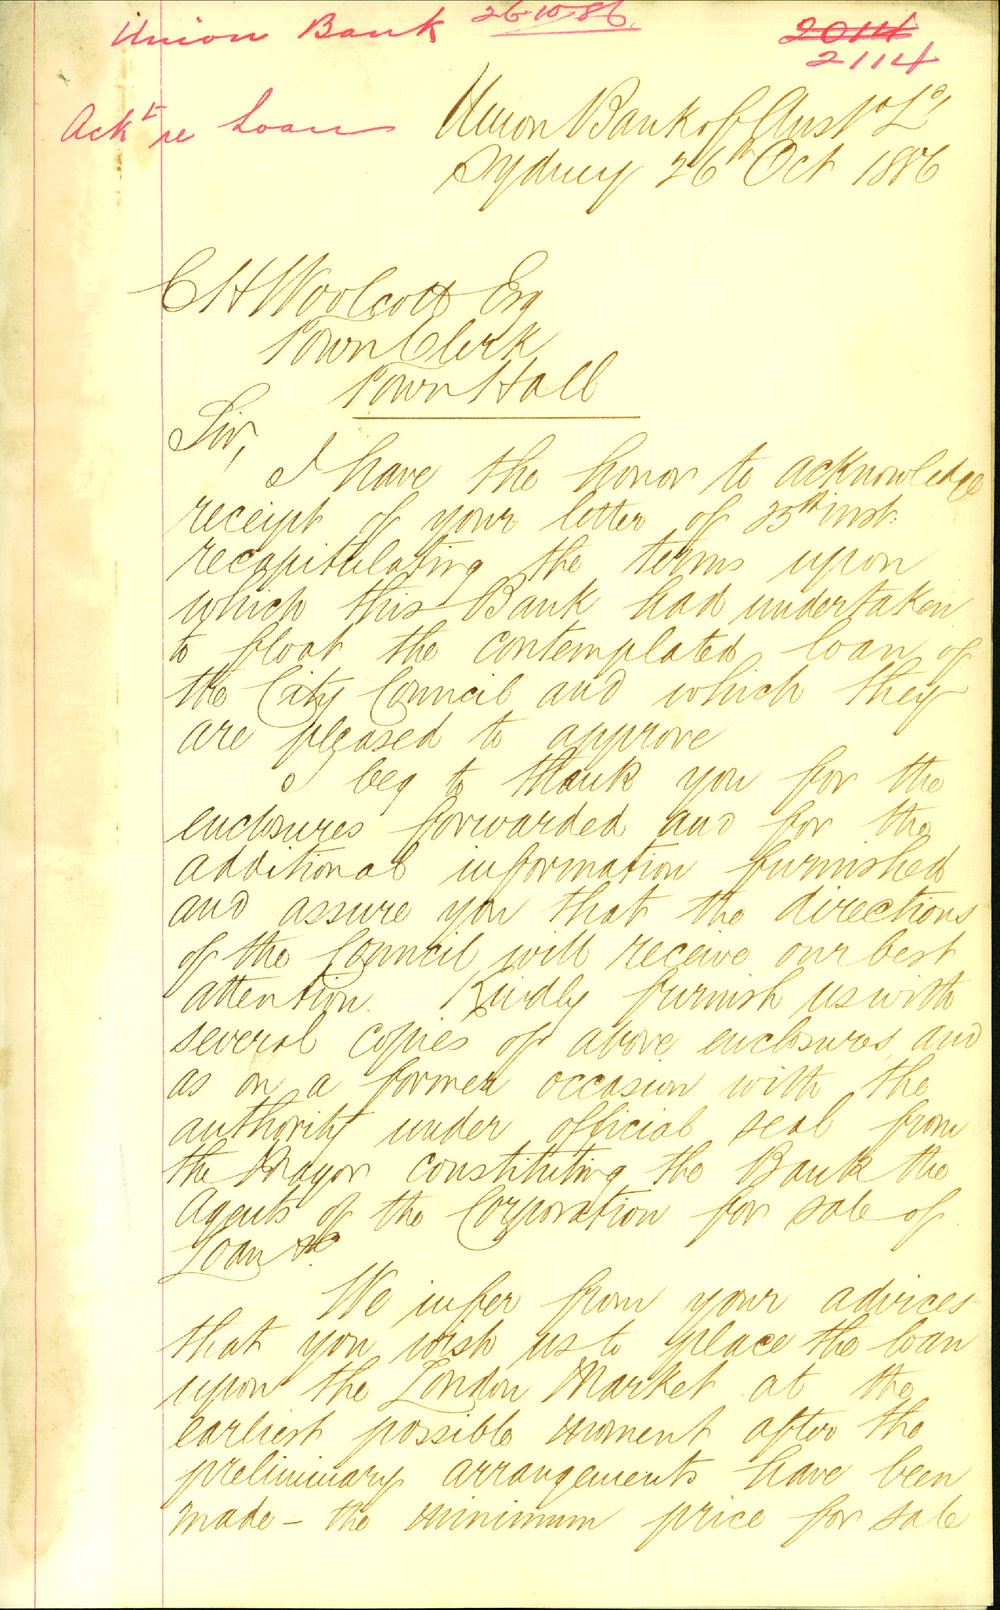 Union Bank 26.10.86.
2014
2114
Ackt re Loan
Union Bank of Austa Ld
Sydney 26th Oct 1886
C H Woolcott Esq
Town Clerk
Town Hall
Sir,
I have the honor to acknowledge
receipt of your letter of 25th inst:
recapitulating the terms upon
which this Bank had undertaken
to float the contemplated loan of
the City Council and which they
are pleased to approve
I beg to thank you for the
enclosures forwarded and for the
additional information furnished
and assure you that the directions
of the Council will receive our best
attention. Kindly furnish us with
several copies of above enclosures and
as on a former occasion with the
authority under official seal from
the Mayor constituting the Bank the
Agents of the Corporation for sale of
Loan &c.
We infer from your advices
that you wish us to place the loan
upon the London Market at the
earliest possible moment after the
preliminary arrangements have been
made - the minimum price for sale